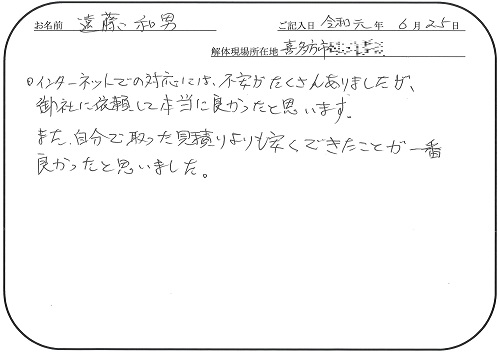 お名前 遠藤 和男 ご記入日 令和元年 6月25日
解体現場所在地 喜多方市
○インターネットでの対応には、不安がたくさんありましたが、
御社に依頼して本当に良かったと思います。
また、自分で取った見積りよりも安くできたことが一番
良かったと思いました。